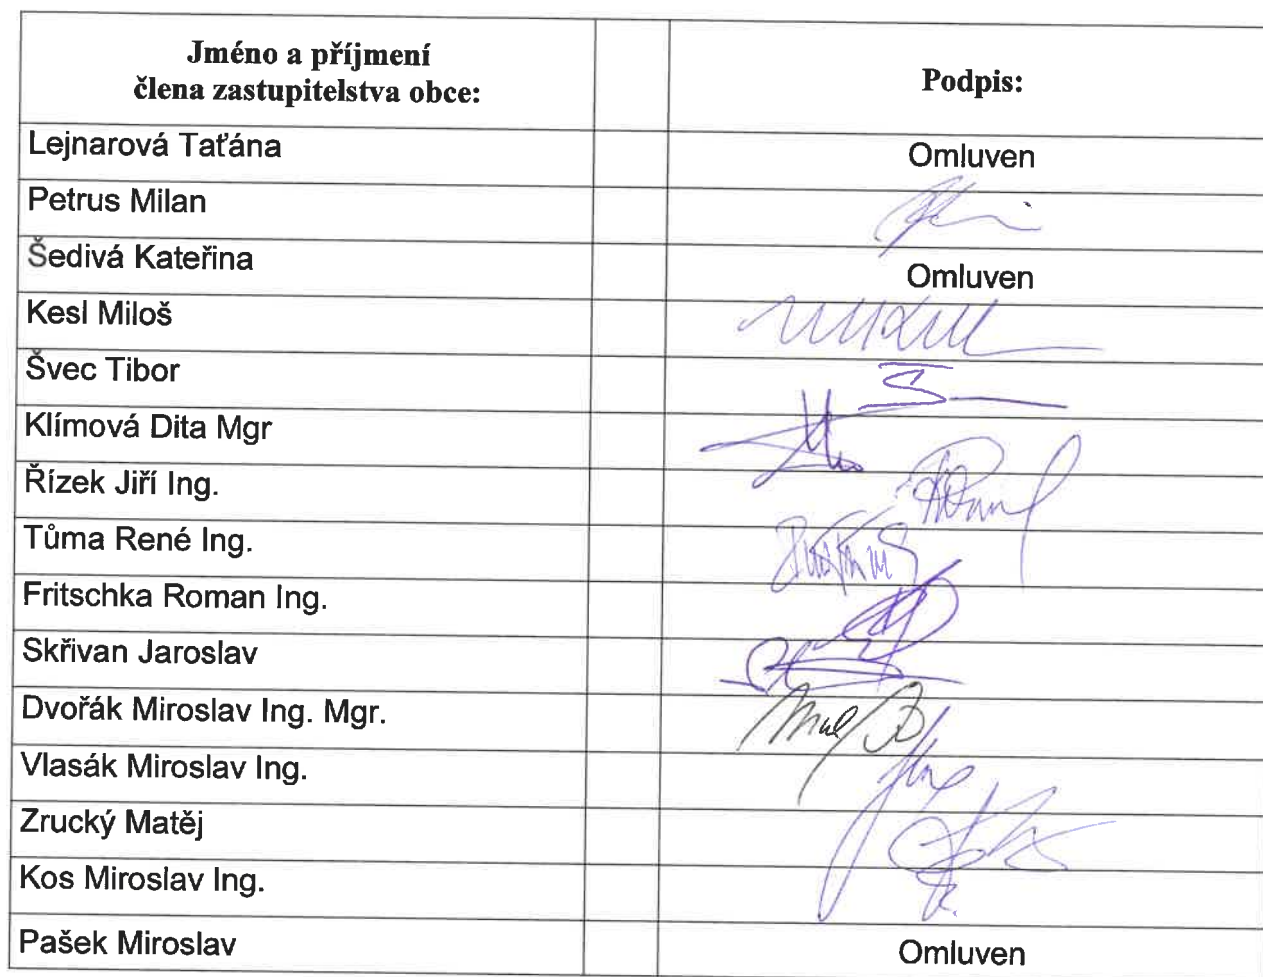 Jméno a příjmení
člena zastupitelstva obce:
Podpis:
Lejnarová Taťána
Omluven
Petrus Milan
Šedivá Kateřina
Omluven
Kesl Miloš
Švec Tibor
Klímová Dita Mgr
Řízek Jiří Ing.
Tůma René Ing.
Fritschka Roman Ing.
Skřivan Jaroslav
Dvořák Miroslav Ing. Mgr.
Vlasák Miroslav Ing.
Zrucký Matěj
Kos Miroslav Ing.
Pašek Miroslav
Omluven